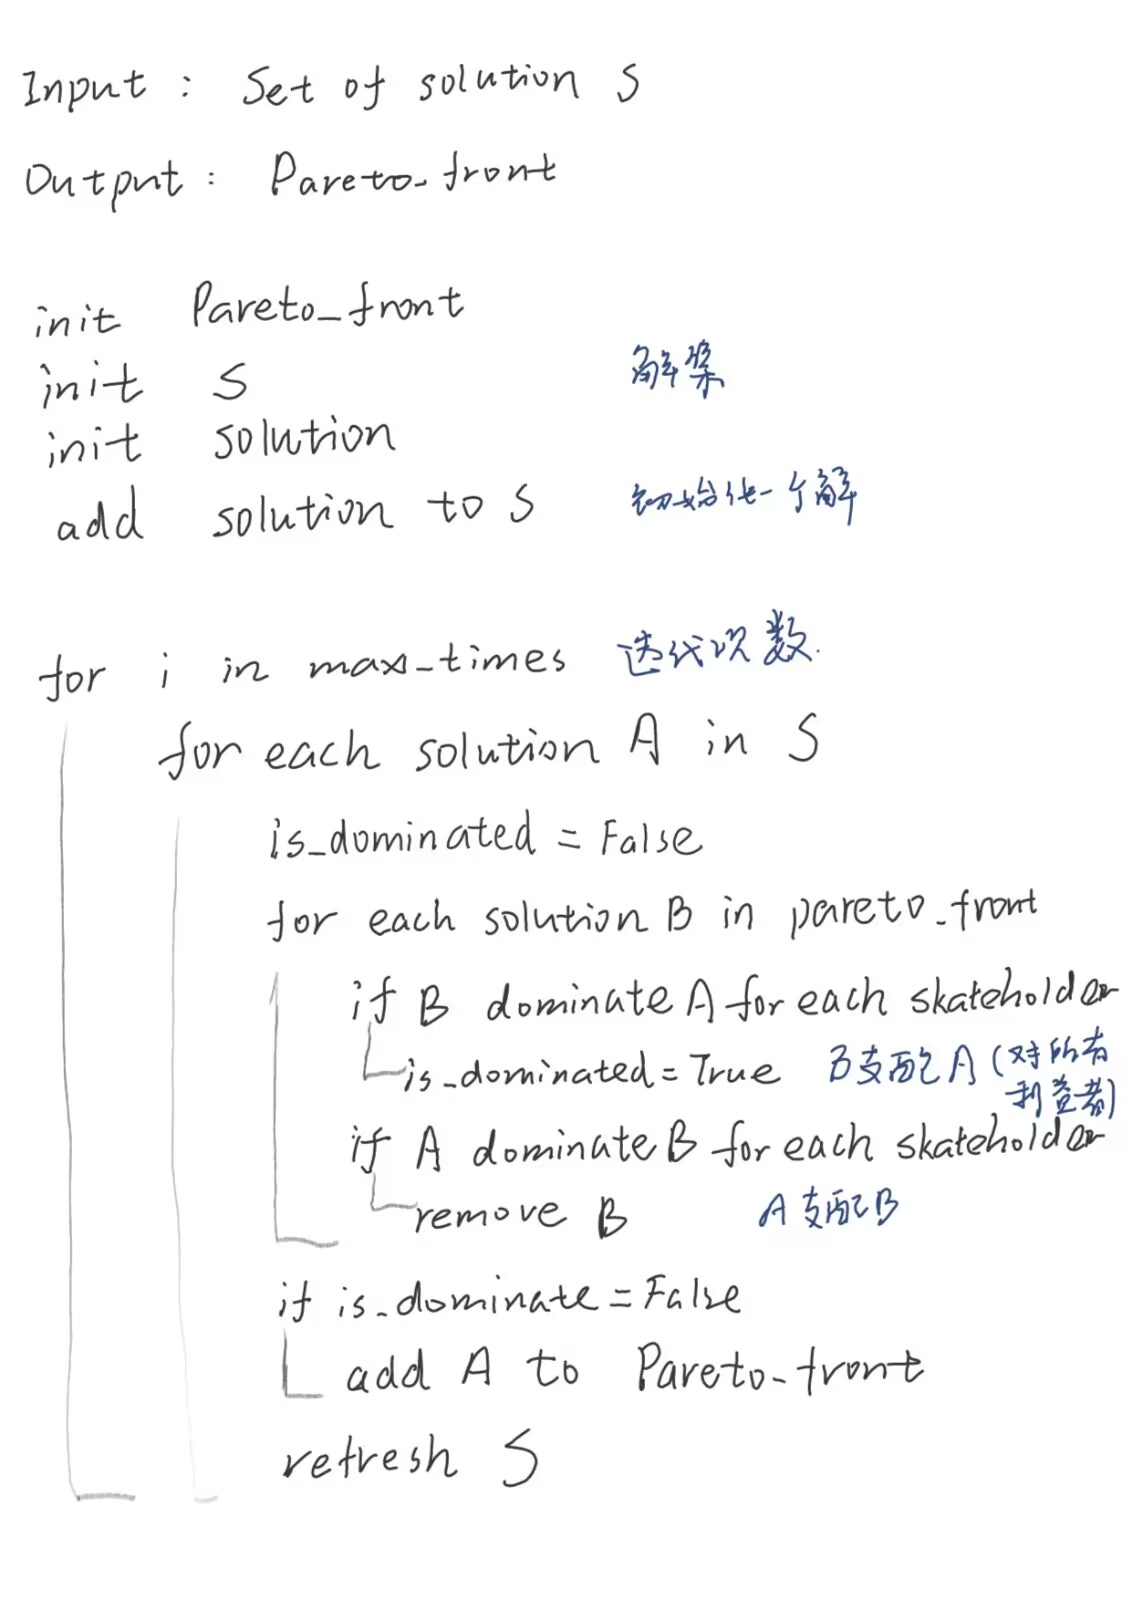 Input : Set of solution S
Output : Pareto_front
init Pareto_front
init S 解集
init solution
add solution to S 初始化一个解
for i in max_times 迭代次数.
for each solution A in S
is_dominated = False
for each solution B in pareto_front
if B dominate A for each skateholder
is_dominated = True B支配A (对所有
利益者)
if A dominate B for each skateholder
remove B A支配B
if is_dominate = False
add A to Pareto_front
refresh S